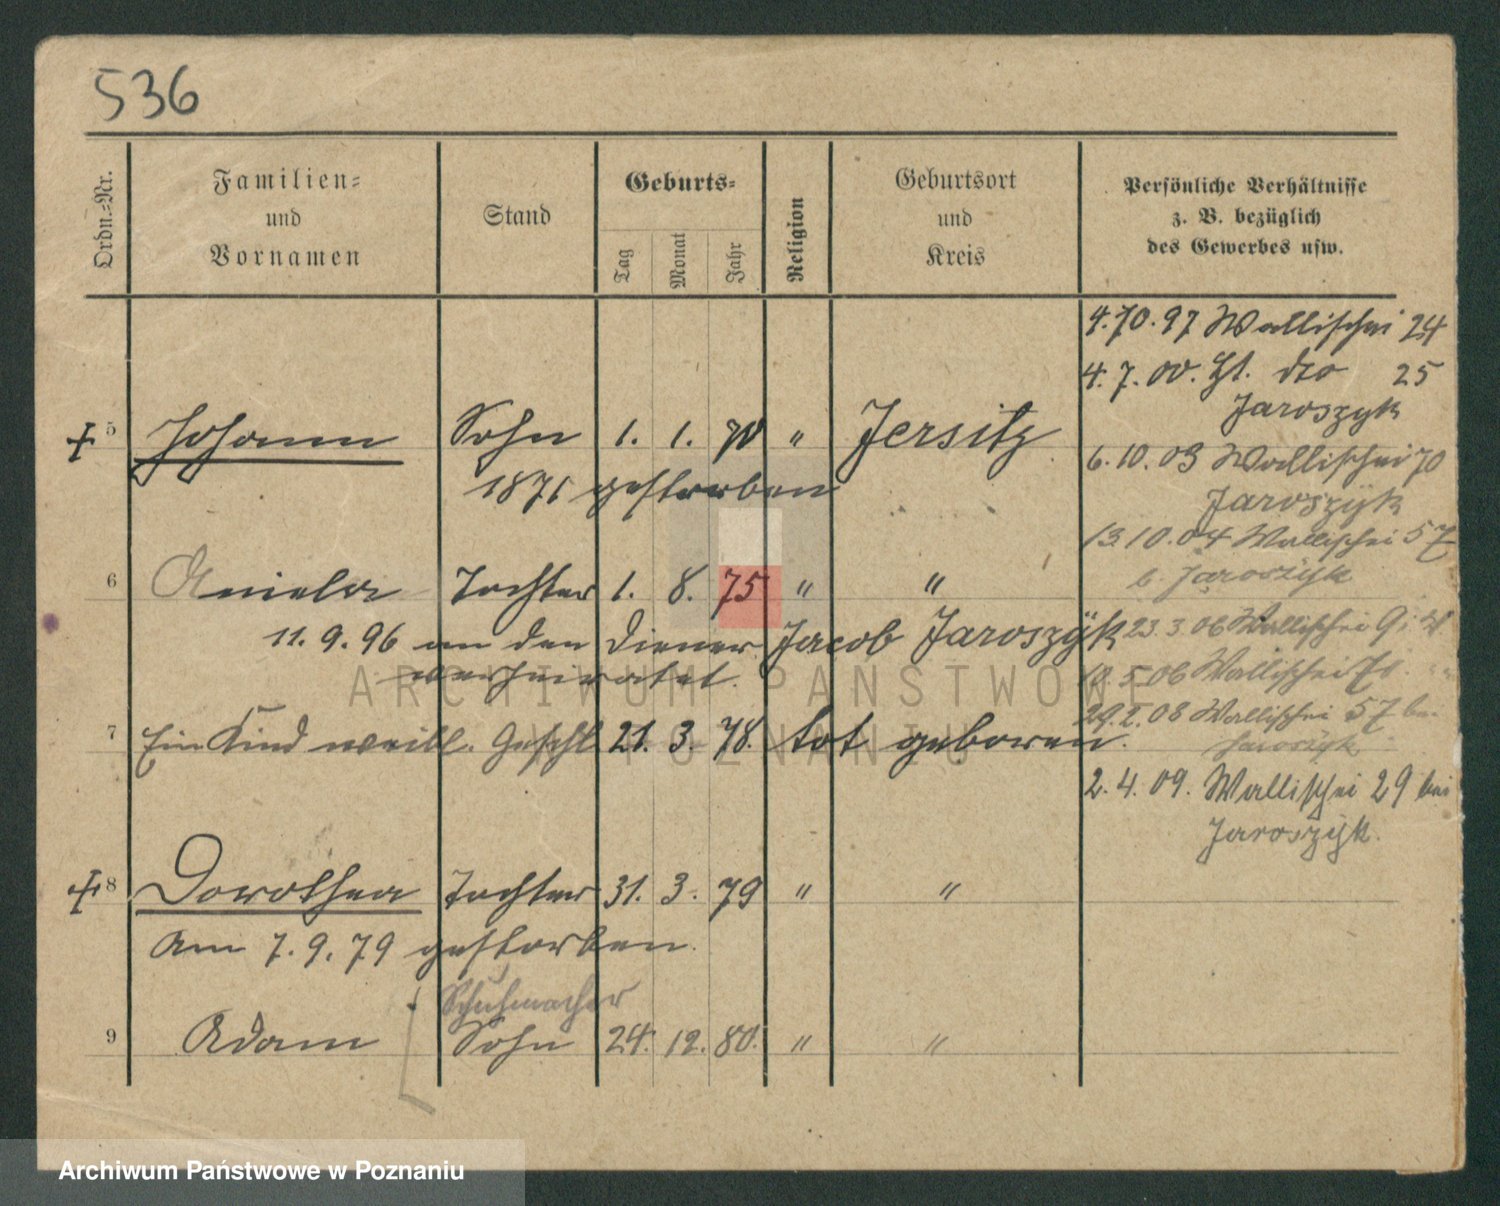 536
Ordn.-Nr.
Familien-
und
Vornamen
Stand
Geburts-
Tag
Monat
Jahr
Religion
Geburtsort
und
Kreis
Persönliche Verhältnisse
z. B. bezüglich
des Gewerbes usw.
4.10.97 Wallischei 24
4.7.00. dto 25
Jaroszyk
5 Johann Sohn 1. 1. 70 " Jersitz
1871 gestorben
6.10.03 Wallischei 70
Jaroszÿk
13.10.04 Wallischei 57
b. Jaroszÿk
6 Aniela Tochter 1. 8. 75 " "
11.9.96 an den Diener Jacob Jaroszÿk
verheiratet.
23.3.06 Wallischei
10.5.06 Wallischei
7 Ein Kind weibl. Geschl 21. 3. 78. tot geboren.
Wallischei 57 bei
Jaroszÿk
2.4.09. Wallischei 29 bei
Jaroszÿk.
8 Dorothea Tochter 31. 3. 79 " "
Am 7.9.79 gestorben.
Schuhmacher
9 Adam Sohn 24. 12. 80. " "
ARCHIWUM PAŃSTWOWE
W POZNANIU
Archiwum Państwowe w Poznaniu